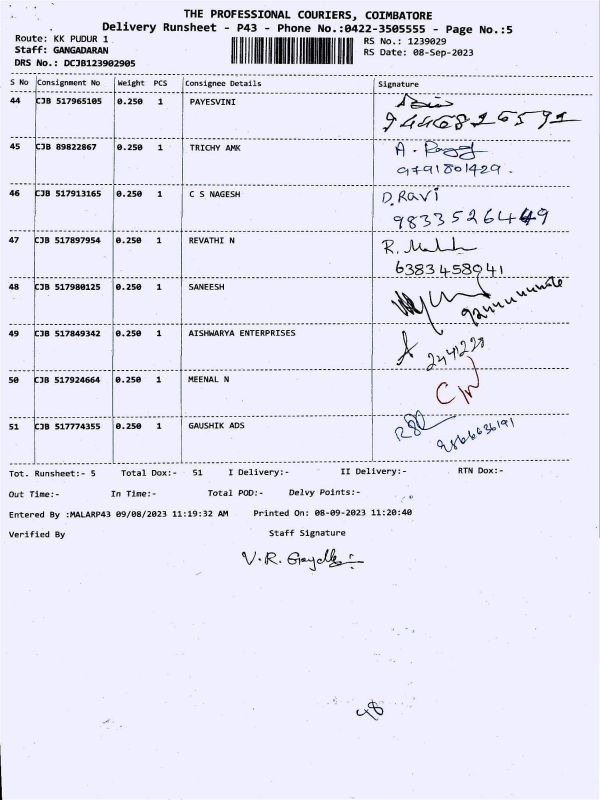 THE PROFESSIONAL COURIERS, COIMBATORE
Delivery Runsheet - P43 - Phone No.:0422-3505555 - Page No.:5
Route: KK PUDUR 1 RS No.: 1239029
Staff: GANGADARAN RS Date: 08-Sep-2023
DRS No.: DCJB123902905
S No Consignment No Weight PCS Consignee Details Signature
44 CJB 517965105 0.250 1 PAYESVINI
9446826591
45 CJB 89822867 0.250 1 TRICHY AMK A.
9791801429.
46 CJB 517913165 0.250 1 C S NAGESH D.Ravi
9833526449
47 CJB 517897954 0.250 1 REVATHI N R.
6383458041
48 CJB 517980125 0.250 1 SANEESH
49 CJB 517849342 0.250 1 AISHWARYA ENTERPRISES A
2441228
50 CJB 517924664 0.250 1 MEENAL N
51 CJB 517774355 0.250 1 GAUSHIK ADS
9866636191
Tot. Runsheet:- 5 Total Dox:- 51 I Delivery:- II Delivery:- RTN Dox:-
Out Time:- In Time:- Total POD:- Delvy Points:-
Entered By :MALARP43 09/08/2023 11:19:32 AM Printed On: 08-09-2023 11:20:40
Verified By Staff Signature
V.R.
48